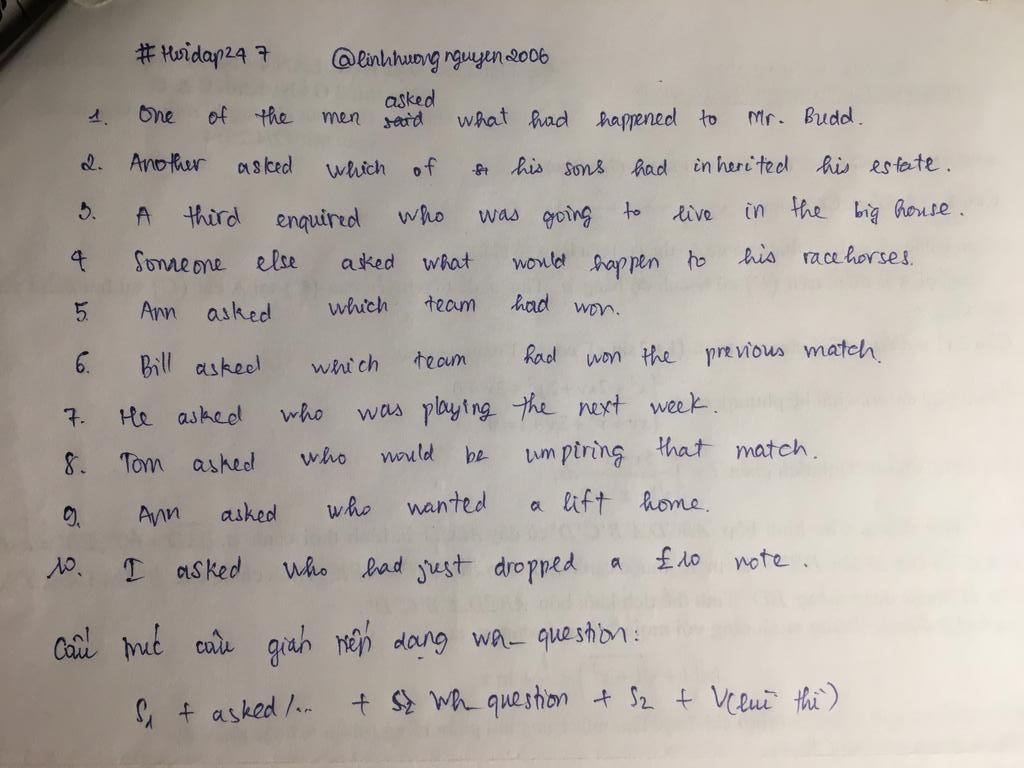 #Hoidap247 @linhhuongnguyen2006
asked
1. One of the men said what had happened to Mr. Budd.
2. Another asked which of his sons had inherited his estate.
3. A third enquired who was going to live in the big house.
4 Someone else asked what would happen to his racehorses.
5. Ann asked which team had won.
6. Bill asked which team had won the previous match.
7. He asked who was playing the next week.
8. Tom asked who would be umpiring that match.
9. Ann asked who wanted a lift home.
10. I asked who had just dropped a £10 note.
Cấu trúc câu gián tiếp dạng wh_ question:
S1 + asked/... + Wh_ question + S2 + V(lùi thì)